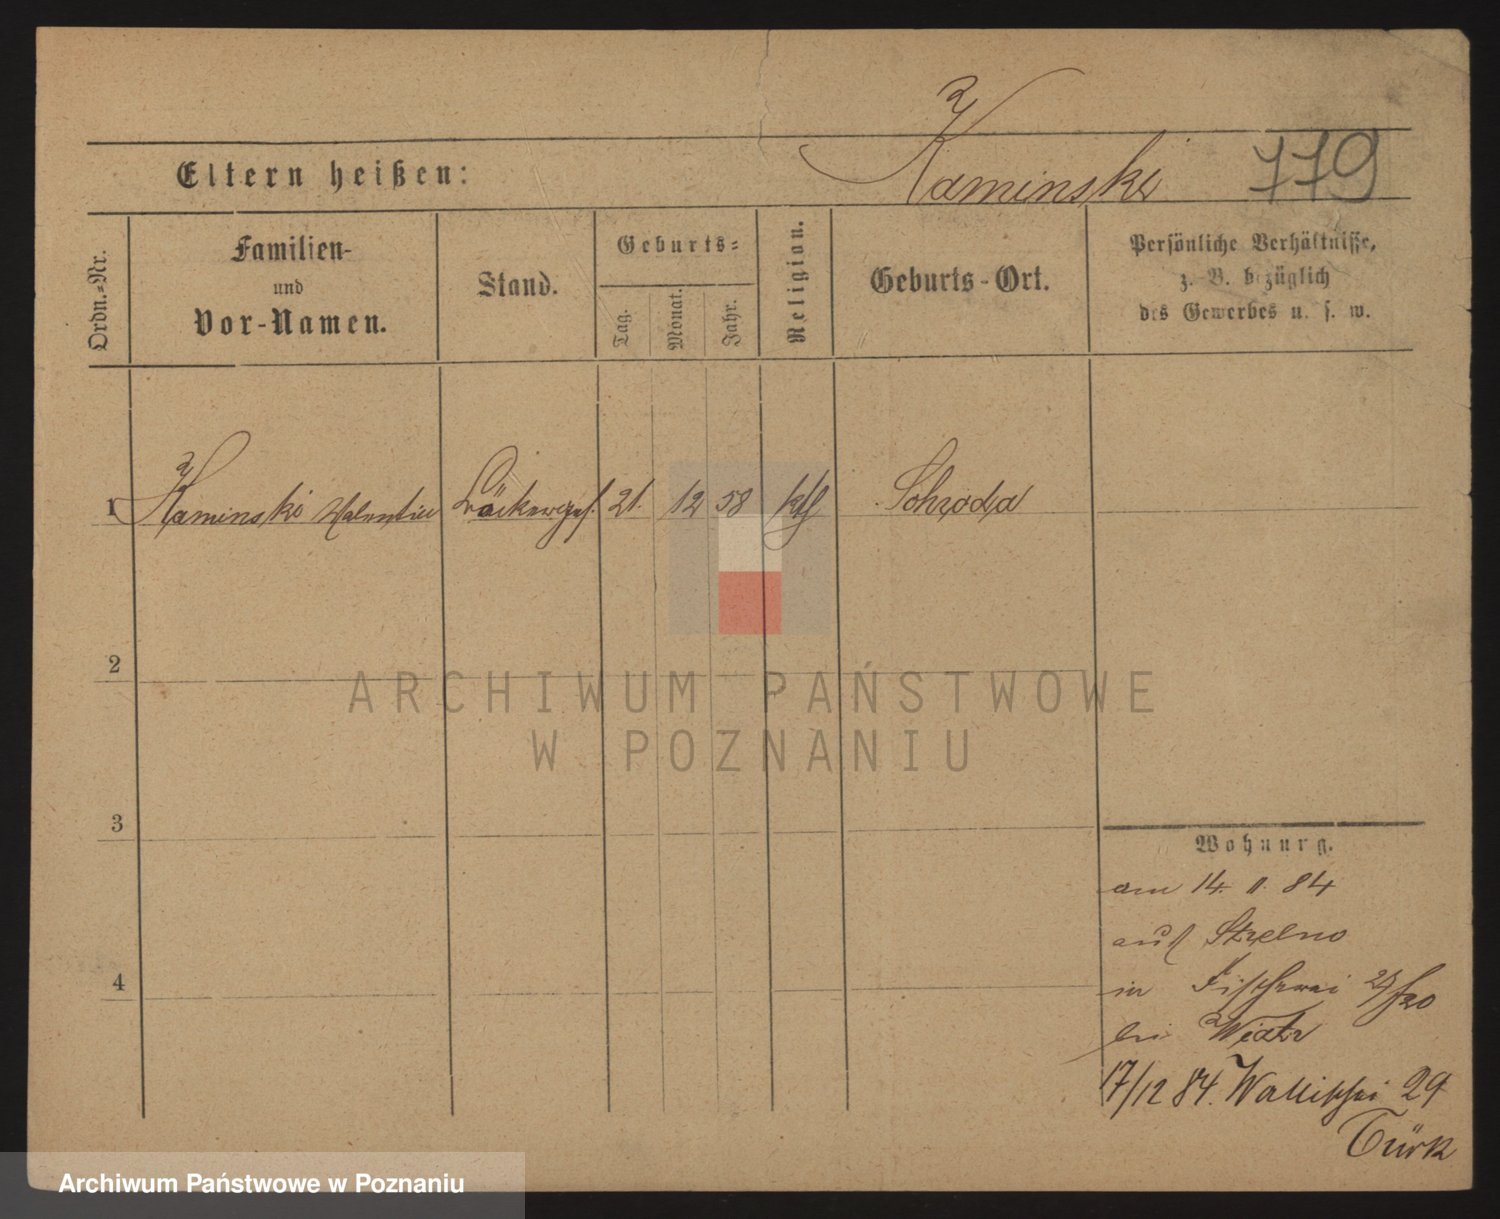 Kaminski 779
Eltern heißen:
Ordn.-Nr.
Familien-
und
Vor-Namen.
Stand.
Geburts-
Tag.
Monat.
Jahr.
Religion.
Geburts-Ort.
Persönliche Verhältnisse,
z. B. bezüglich
des Gewerbes u. s. w.
1 Kaminski Valentin Bäckerges. 21. 12 58 kth Schroda
2
3
4
Wohnung.
am 14. 11. 84
aus Strelno
in Fischerei /20
bei Wiatr
17/12 84. Wallischei 29
Türk
ARCHIWUM PAŃSTWOWE
W POZNANIU
Archiwum Państwowe w Poznaniu